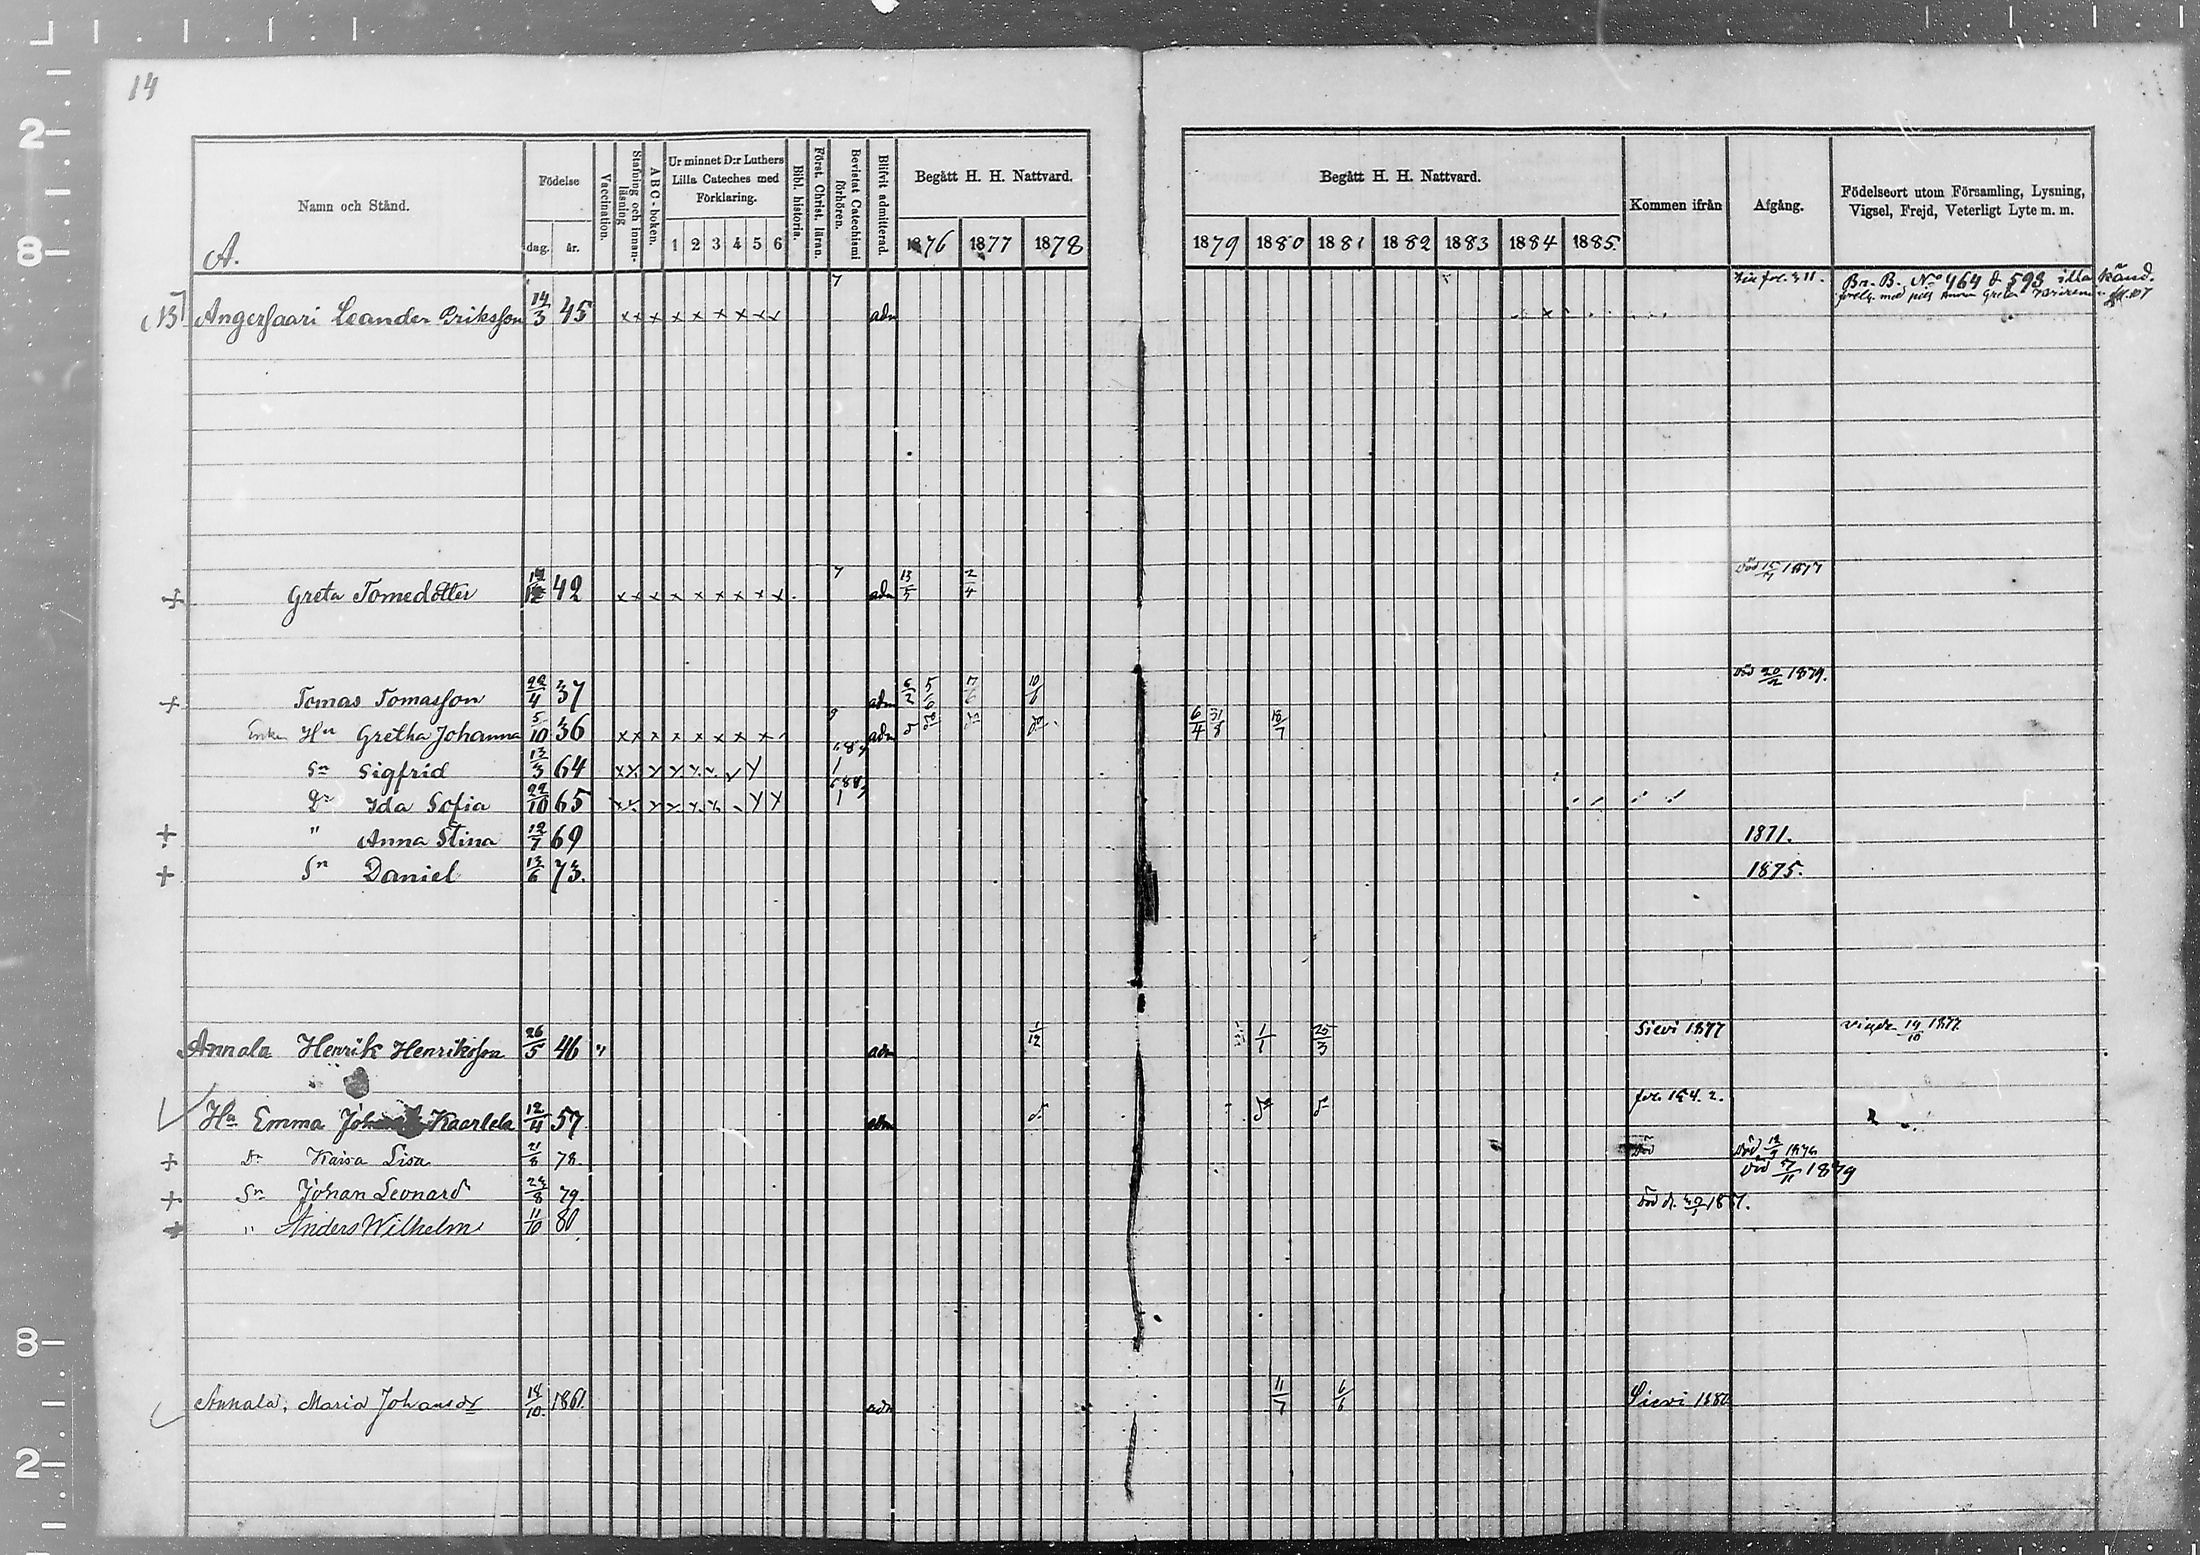 14
Namn och Stånd.
A.
Födelse
dag. år.
Vaccination.
Stafning och innanläsning
A B C-boken.
Ur minnet D:r Luthers Lilla Cateches med Förklaring.
1 2 3 4 5 6
Bibl. historia.
Först. Christ. läran.
Bevistat Catechismi förhören.
Blifvit admitterad.
Begått H. H. Nattvard.
1876 1877 1878
Begått H. H. Nattvard.
1879 1880 1881 1882 1883 1884 1885.
Kommen ifrån
Afgång.
Födelseort utom Församling, Lysning, Vigsel, Frejd, Veterligt Lyte m. m.
Br. B. No 464 & 593 illa känd.
Angersaari Leander Eriksson 14/3 45 x x x x x x x x x adm
Greta Tomedotter 42 x x x x x x x x x 7 adm 13/5 2/4 död 15/4 1877
+ Tomas Tomasson 22/4 37 adm 6/2 5/6 17/6 10/6 död 20/2 1879.
Enkn Hu Gretha Johanna 5/10 36 x x x x x x x x adm 6/4 18/7
Sn Sigfrid 13/3 64
Dr Ida Sofia 22/10 65
+ " Anna Stina 12/7 69 1871.
+ Sn Daniel 13/6 73. 1875.
Annala Henrik Henriksson 26/5 46 " adm 1/12 1/1 25/3 Sievi 1877 vigde 19/10 1877
Hu Emma Kaarlela 12/4 57 adm
+ Dr Kaisa Lisa 21/8 78.
+ Sn Johan Leonard 24/8 79 död 1879
+ " Anders Wilhelm 11/10 80.
Annala, Maria Johansdr 18/10. 1861. adm 11/7 6/6 Sievi 1880